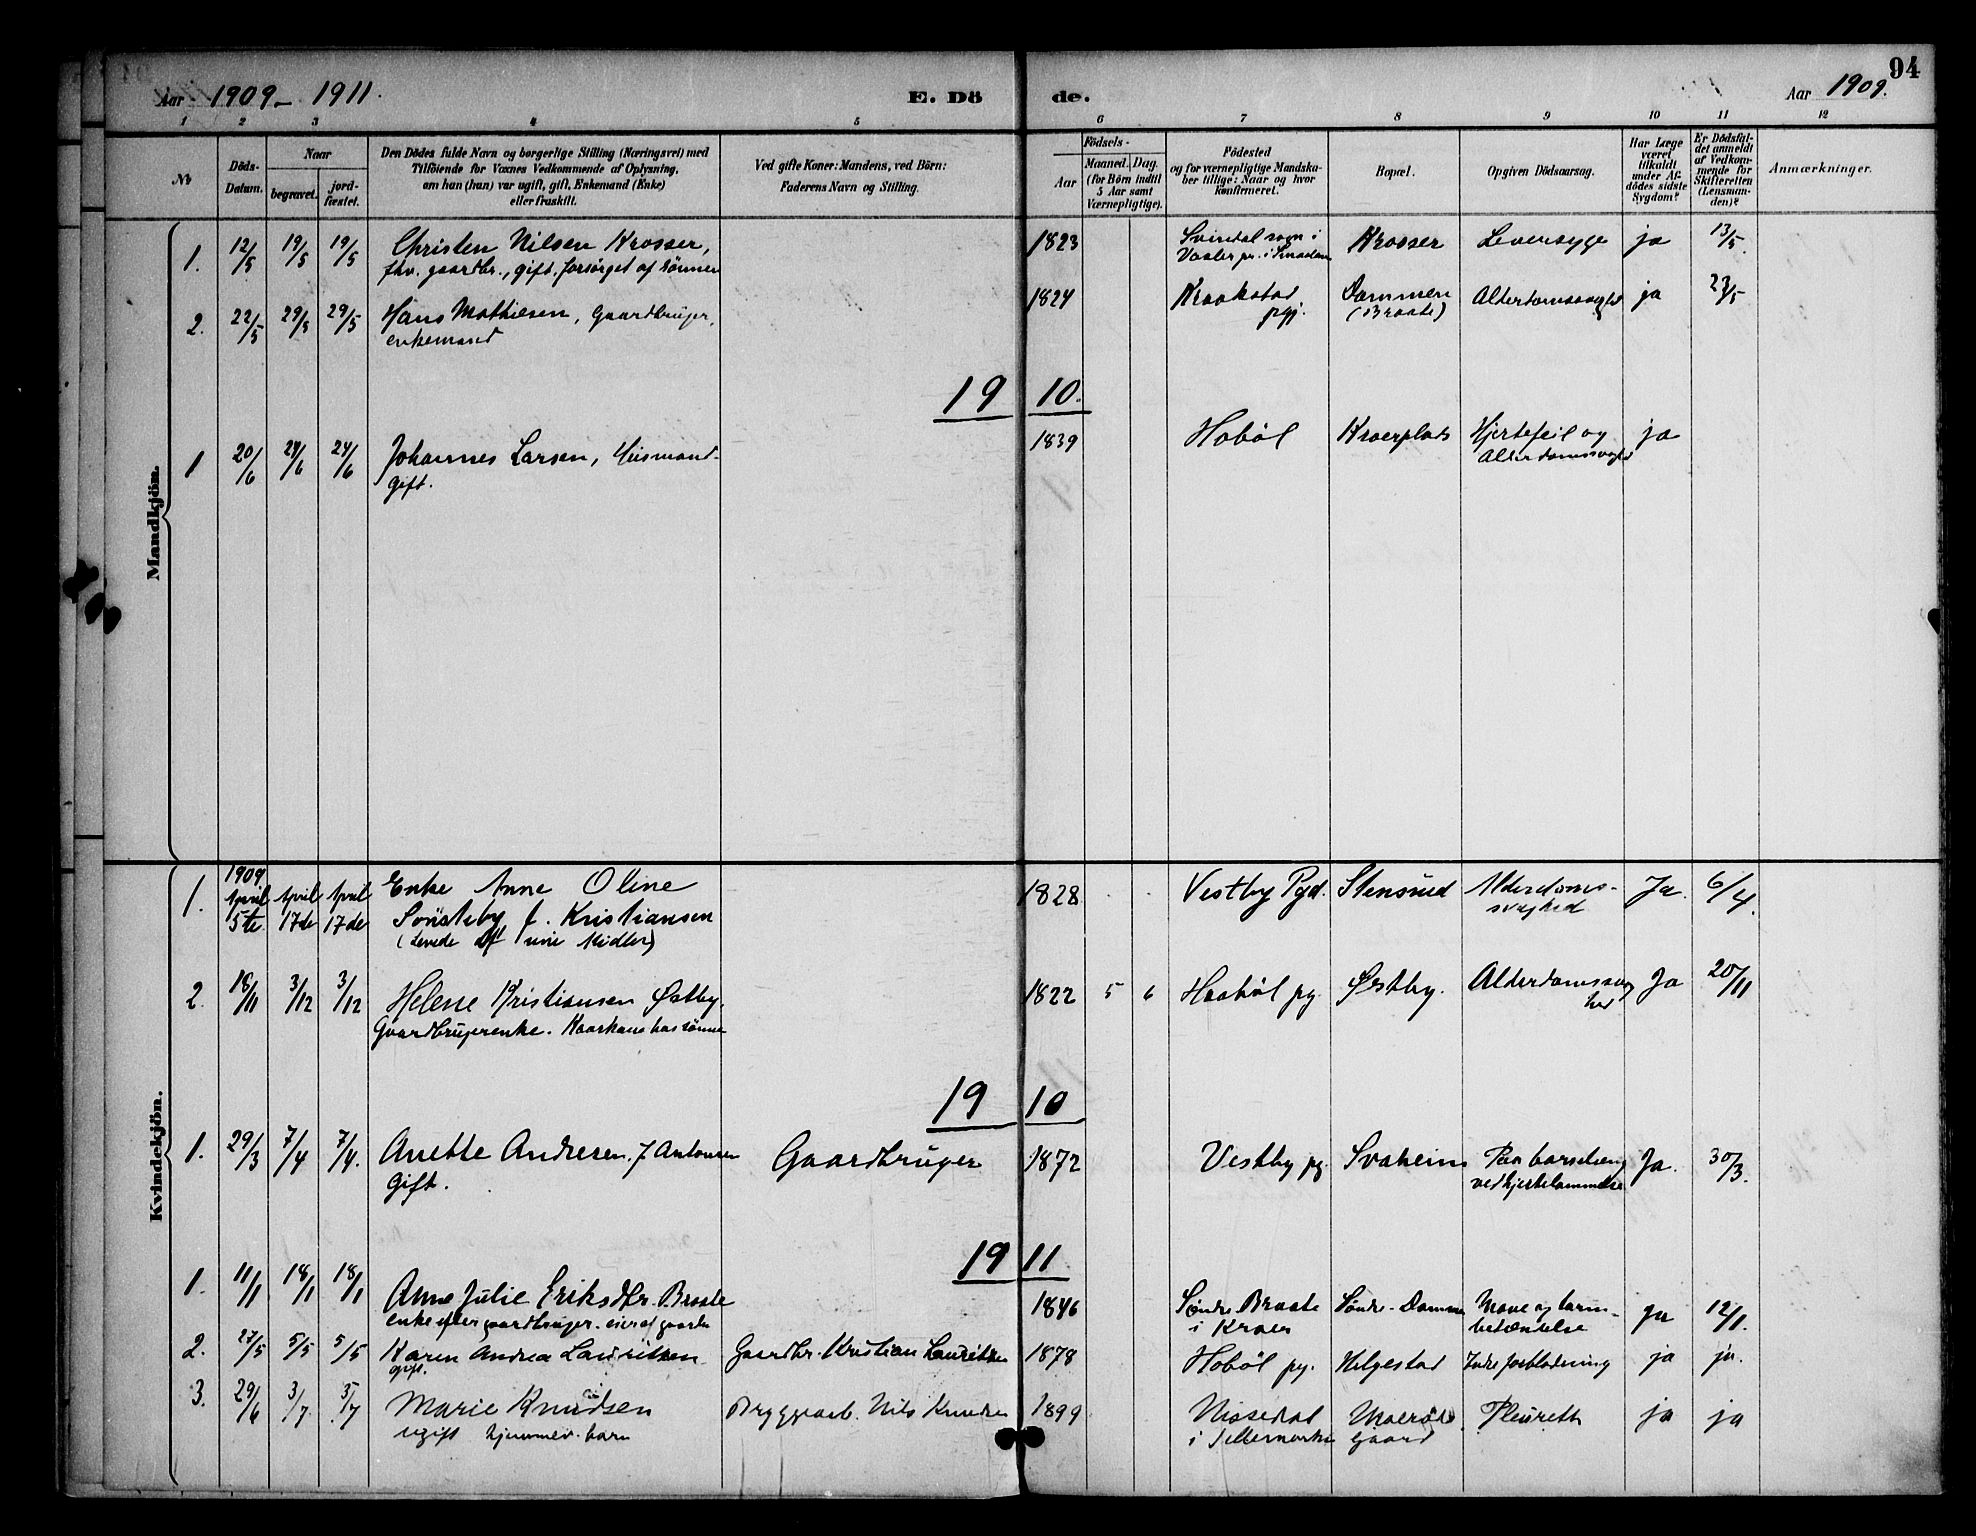 94
Aar 1909 – 1911.
E. Dö de.
Aar 1909.
1 2 3 4 5 6 7 8 9 10 11 12
No
Döds-Datum.
Naar
begravet.
jord-fæstet.
Den Dödes fulde Navn og borgerlige Stilling (Næringsvei) med
Tilföiende for Voxnes Vedkommende af Oplysning,
om han (hun) var ugift, gift, Enkemand (Enke)
eller fraskilt.
Ved gifte Koner: Mandens, ved Börn:
Faderens Navn og Stilling.
Födsels-
Aar
Maaned. Dag.
(for Börn indtil
5 Aar samt
Værnepligtige).
Födested
og for værnepligtige Mandska-
ber tillige: Naar og hvor
konfirmeret.
Bopæl.
Opgiven Dödsaarsag.
Har Læge
været
tilkaldt
under Af-
dödes sidste
Sygdom?
Er Dödsfal-
det anmeldt
af Vedkom-
mende for
Skifteretten
(Lensman-
den)?
Anmærkninger.
Mandkjön.
1. 12/5 19/5 19/5 Christen Nilsen Krosser, 1823 Svindal sogn i Krosser Leversyge ja 13/5
fhv. gaardbr., gift, forsörget af sönnen Vaaler pr. i Smaalene
2. 22/5 29/5 29/5 Hans Mathiesen, Gaardbruger, 1824 Kraakstad Dammen Alderdomssvaghd ja 23/5
enkemand pgj. (Braate)
19 10.
1 20/6 24/6 24/6 Johannes Larsen, Husmand- 1839 Hobøl Kroerplads Hjertefeil og ja
gift. Alderdomssvaghd
Kvindekjön.
1909
1. April April April Enke Anne Oline 1828 Vestby Pgd. Stensrud Alderdoms- Ja 6/4.
5te 17de 17de Sönsteby f. Kristiansen svaghed
(Levede af sine Midler)
2. 18/11 3/12 3/12 Helene Kristiansen Østby. 1822 5 6 Haabøl pg. Østby. Alderdomssvag Ja 20/11
Gaardbrugerenke. Kaarkone hos sønnen hed
19 10
1. 29/3 7/4 7/4. Anette Andresen, f Antonsen Gaardbruger 1872 Vestby pg. Svaheim Paa barselseng Ja. 30/3.
gift. ved hjertelammelse
19 11
1. 11/1 18/1 18/1 Anne Julie Eriksdtr. Braate 1846 Søndre Braate Søndre-Dammen Mave og tarm- Ja 12/1.
enke efter gaardbruger. eier af gaarden i Kroer betændelse
2. 27/5 5/5 5/5 Karen Andrea Lauritsen Gaardbr. Kristian Lauritsen 1878 Hobøl pg. Helgestad Indre forblødning ja ja.
gift.
3. 29/6 3/7 3/7 Marie Knudsen Byggearb. Nils Knudsen 1899 Nissedal Pleurett ja ja
ugift hjemmev. barn i Tellemarken gaard